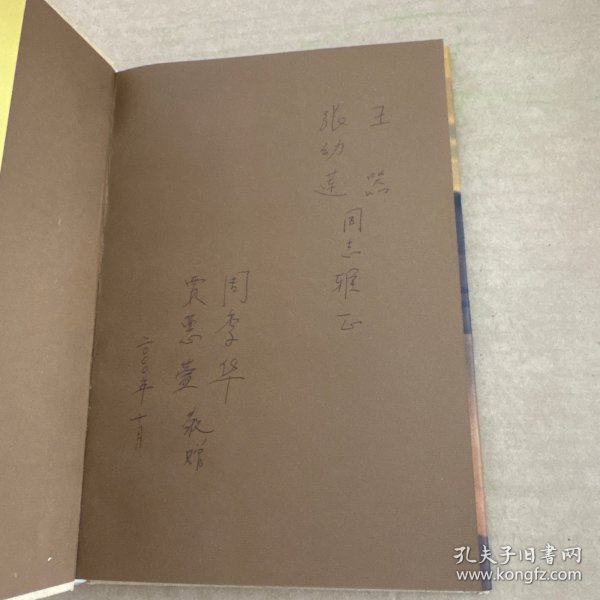 王
张幼莲
同志雅正
周季华
贾蕙萱 敬赠
二〇〇〇年十月
孔夫子旧书网
www.kongfz.com